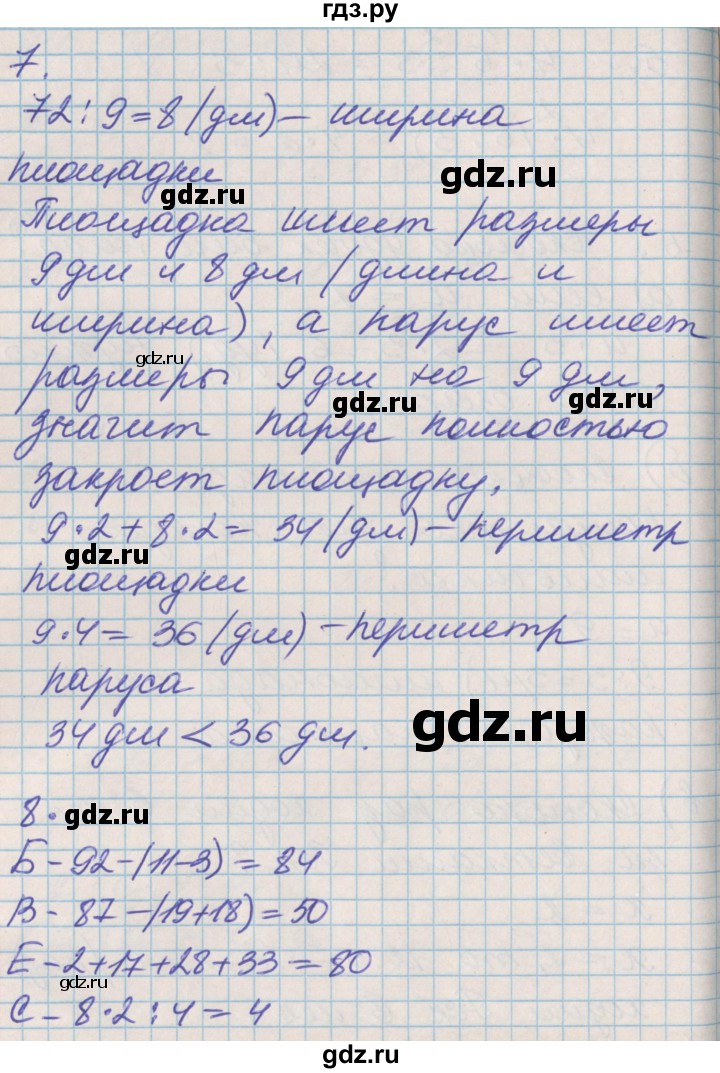 гдз.ру
7.
72 : 9 = 8 (дм) – ширина
gdz.ru
площадки
gdz.ru
Площадка имеет размеры
9 дм и 8 дм (длина и
ширина), а парус имеет
gdz.ru
размеры 9 дм на 9 дм,
gdz.ru gdz.ru
значит парус полностью
закроет площадку.
9 · 2 + 8 · 2 = 34 (дм) – периметр
gdz.ru
площадки
9 · 4 = 36 (дм) – периметр
gdz.ru
паруса
gdz.ru
34 дм < 36 дм.
8.
gdz.ru
Б – 92 – (11 – 3) = 84
В – 87 – (19 + 18) = 50
Е – 2 + 17 + 28 + 33 = 80
gdz.ru
С – 8 · 2 : 4 = 4
gdz.ru